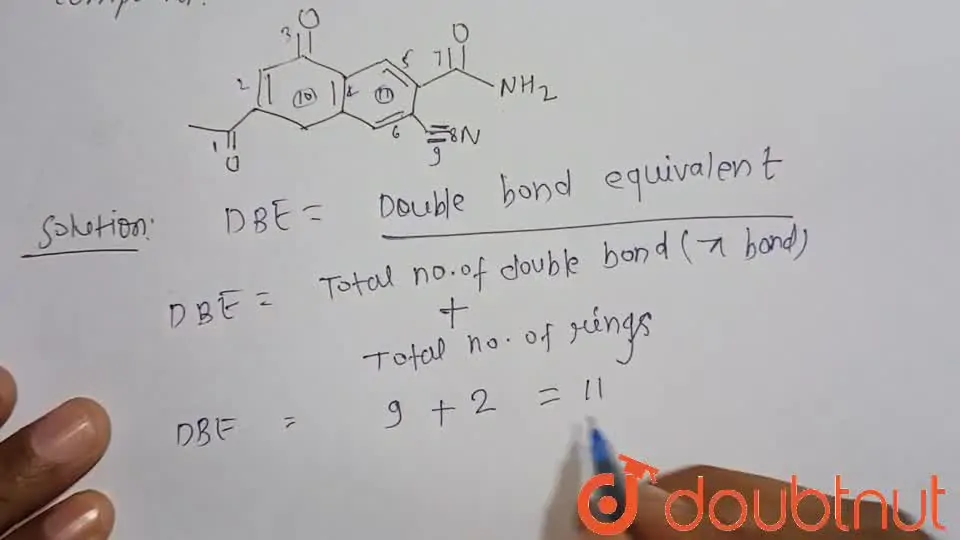 O
3
O
2
5
7
10
4
11
NH2
6
8N
1
9
O
Solution:
DBE = Double bond equivalent
DBE = Total no. of double bond (π bond)
+
Total no. of rings
DBE = 9 + 2 = 11
doubtnut